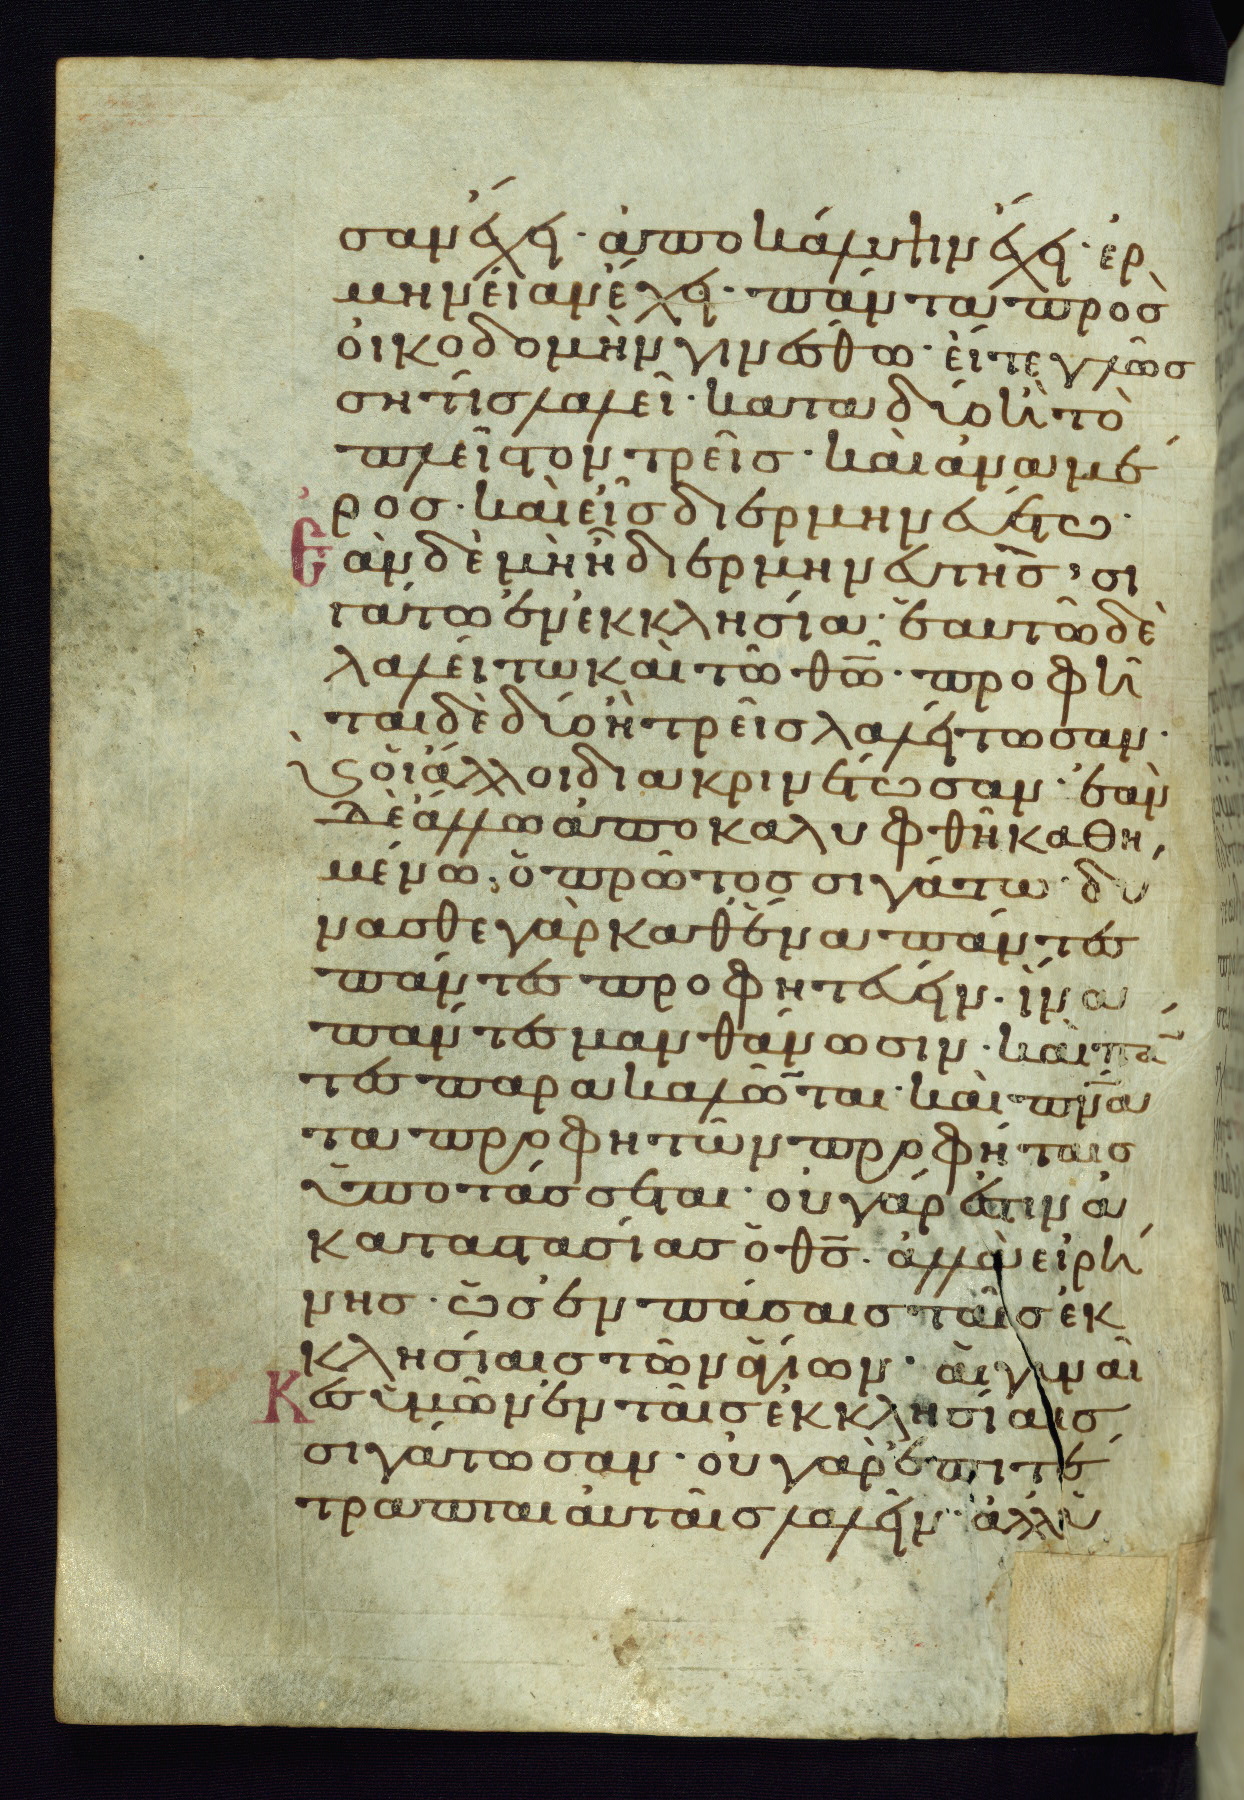 σαν ἔχει· ἀποκάλυψιν ἔχει· ἑρ
μηνείαν ἔχει· πάντα πρὸσ
οἰκοδομὴν γινέσθω· εἴτε γλώσ
ση τίσ λαλεῖ· κατα δύο ἢ τὸ
πλεῖστον τρεῖσ· καὶ ἀνα μέ
ροσ· καὶ εἷσ διερμηνευέτω·
Ἐὰν δὲ μὴ ἦ διερμηνευτὴσ, σι
γάτω ἐν ἐκκλησία· ἑαυτῶ δὲ
λαλείτω καὶ τῶ θῶ· προφῆ
ται δὲ δύο ἢ τρεῖσ λαλείτωσαν·
ϗ οἱ ἄλλοι διακρινέτωσαν· ἐὰν
δὲ ἄλλω ἀποκαλυφθῆ καθη
μένω, ὁ πρῶτοσ σιγάτω· δύ
νασθε γὰρ καθ ἕνα πάντεσ
πάντεσ προφητεύειν· ἵνα
πάντεσ μανθάνωσιν· καὶ πᾶ
τεσ παρακαλῶται· καὶ πνα
τα προφητῶν προφήταισ
ὑποτάσσεται· οὐ γάρ ἐστιν ἀ
καταστασίασ ὁ θσ· ἀλλὰ εἰρή
νησ· ὡσ ἐν πάσαισ ταῖσ ἐκ
κλησίαισ τῶν ἁγίων· αἱ γυναῖ
Κεσ ὑμῶν ἐν ταῖσ ἐκκλησίαισ
σιγάτωσαν· οὐ γὰρ ἐπιτέ
τραπται αὐταῖσ λαλεῖν· ἀλλ ὑ